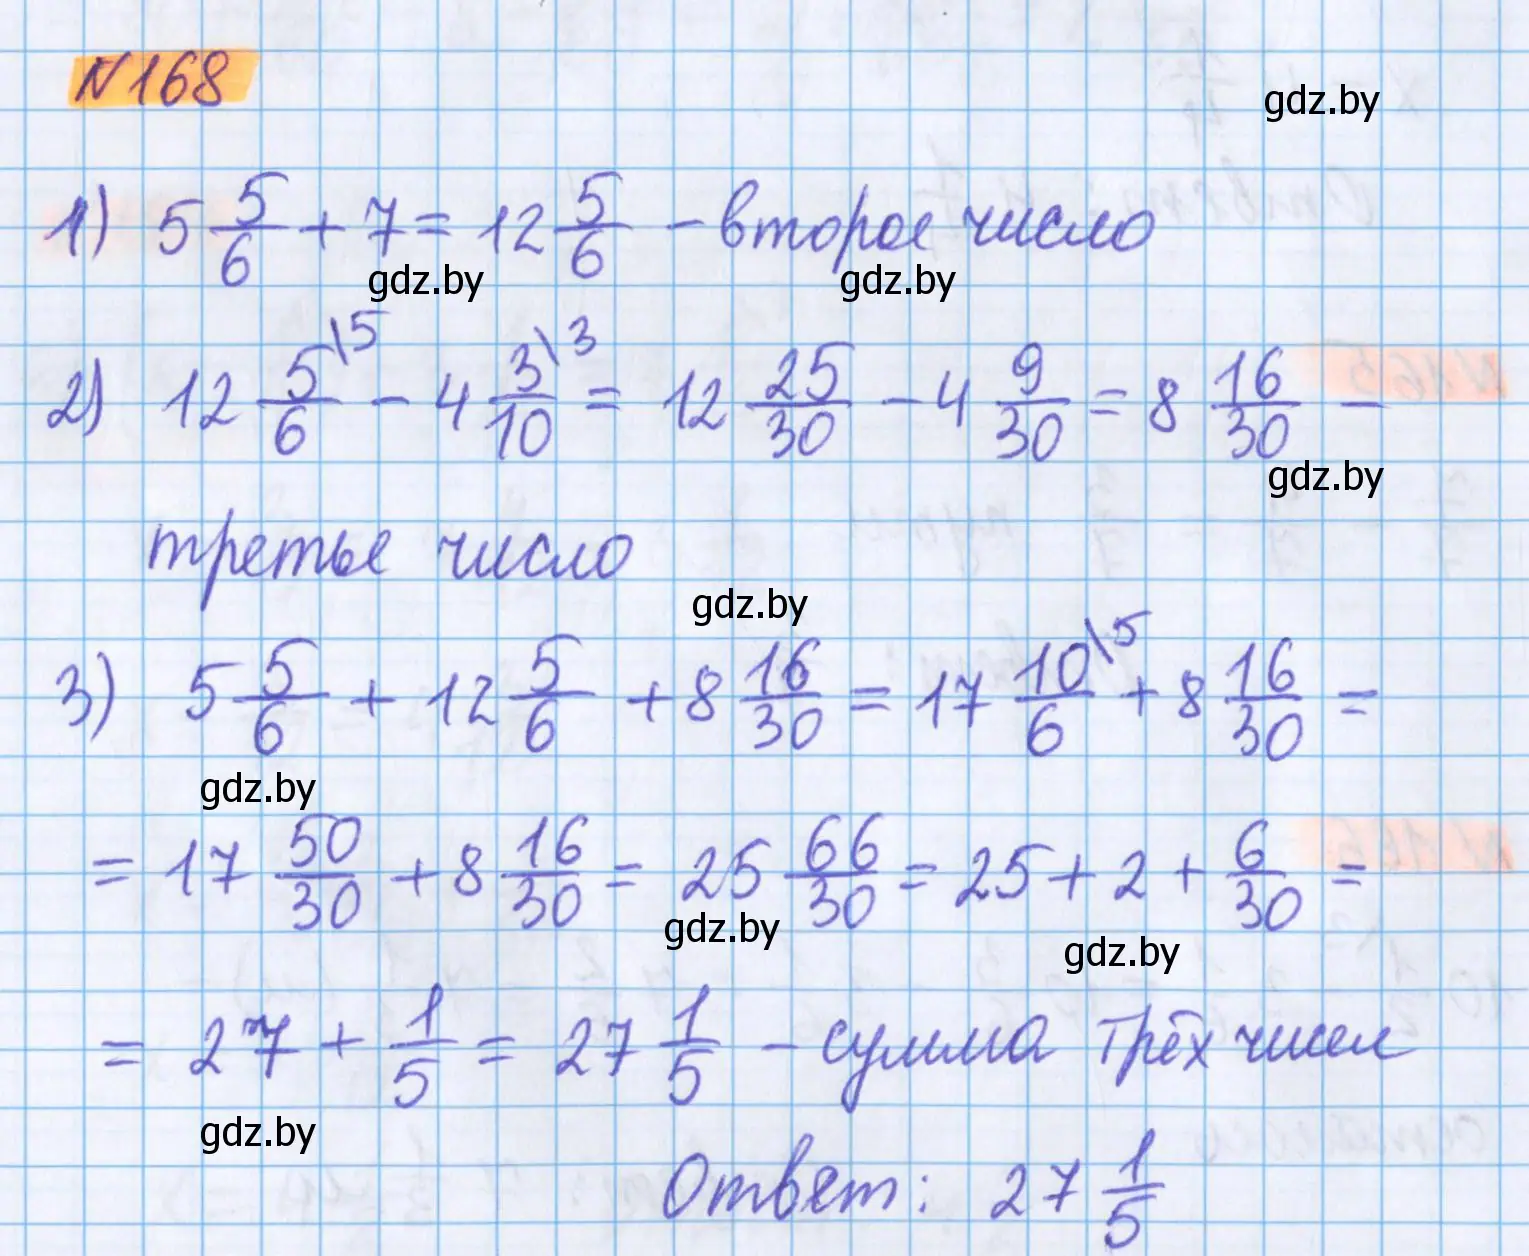 N168
gdz.by
1) 5 5/6 + 7 = 12 5/6 - второе число
gdz.by gdz.by
2) 12 5/6 \5 - 4 3/10 \3 = 12 25/30 - 4 9/30 = 8 16/30 -
gdz.by
третье число
gdz.by
3) 5 5/6 + 12 5/6 + 8 16/30 = 17 10/6 \5 + 8 16/30 =
gdz.by
= 17 50/30 + 8 16/30 = 25 66/30 = 25 + 2 + 6/30 =
gdz.by gdz.by
= 27 + 1/5 = 27 1/5 - сумма трёх чисел
gdz.by
Ответ: 27 1/5